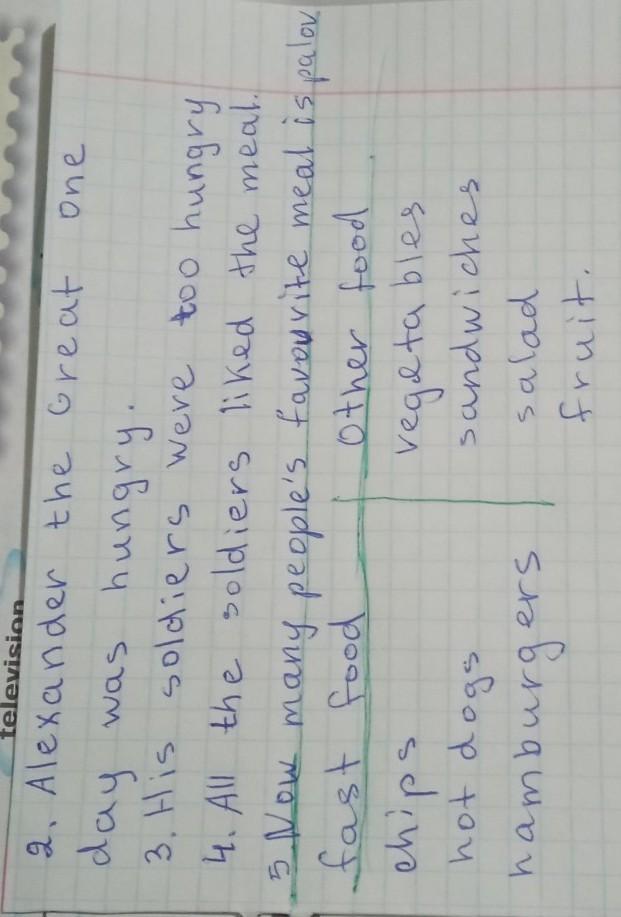 television
2. Alexander the Great one
day was hungry.
3. His soldiers were too hungry
4. All the soldiers liked the meal.
5 Now many people's favourite meal is palov
fast food Other food
chips vegetables
hot dogs sandwiches
hamburgers salad
fruit.